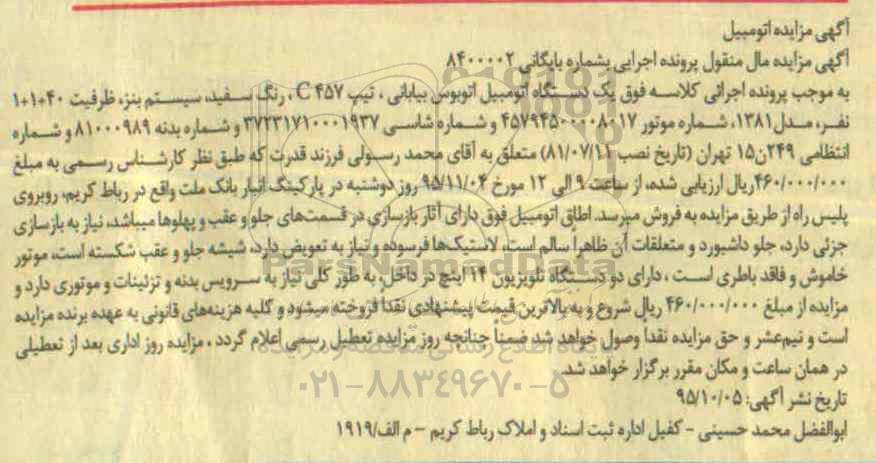 آگهی مزایده اتومبیل
آگهی مزایده مال منقول پرونده اجرایی بشماره بایگانی ۸۴۰۰۰۰۲
به موجب پرونده اجرائی کلاسه فوق یک دستگاه اتومبیل اتوبوس بیابانی ، تیپ C ۴۵۷ ، رنگ سفید، سیستم بنز، ظرفیت ۴۰+۱+۱
نفر، مدل ۱۳۸۱، شماره موتور ۴۵۷۹۴۵۰۰۰۰۸۰۱۷ و شماره شاسی ۳۷۲۳۱۷۱۰۰۰۱۹۳۷ و شماره بدنه ۸۱۰۰۰۹۸۹ و شماره
انتظامی ۲۴۹ن۱۵ تهران (تاریخ نصب ۸۱/۰۷/۱۱) متعلق به آقای محمد رسولی فرزند قدرت که طبق نظر کارشناس رسمی به مبلغ
۴۶۰/۰۰۰/۰۰۰ریال ارزیابی شده، از ساعت ۹ الی ۱۲ مورخ ۹۵/۱۱/۰۴ روز دوشنبه در پارکینگ انبار بانک ملت واقع در رباط کریم، روبروی
پلیس راه از طریق مزایده به فروش میرسد. اطاق اتومبیل فوق دارای آثار بازسازی در قسمت‌های جلو و عقب و پهلوها میباشد، نیاز به بازسازی
جزئی دارد، جلو داشبورد و متعلقات آن ظاهراً سالم است، لاستیک‌ها فرسوده و نیاز به تعویض دارد، شیشه جلو و عقب شکسته است، موتور
خاموش و فاقد باطری است ، دارای دو دستگاه تلویزیون ۱۴ اینچ در داخل، به طور کلی نیاز به سرویس بدنه و تزئینات و موتوری دارد و
مزایده از مبلغ ۴۶۰/۰۰۰/۰۰۰ ریال شروع و به بالاترین قیمت پیشنهادی نقداً فروخته میشود و کلیه هزینه‌های قانونی به عهده برنده مزایده
است و نیم‌عشر و حق مزایده نقداً وصول خواهد شد ضمناً چنانچه روز مزایده تعطیل رسمی اعلام گردد ، مزایده روز اداری بعد از تعطیلی
در همان ساعت و مکان مقرر برگزار خواهد شد.
تاریخ نشر آگهی: ۹۵/۱۰/۰۵
ابوالفضل محمد حسینی - کفیل اداره ثبت اسناد و املاک رباط کریم – م الف/۱۹۱۹
ParsNamadData
پایگاه اطلاع رسانی مناقصه و مزایده
۰۲۱-۸۸۳۴۹۶۷۰-۵